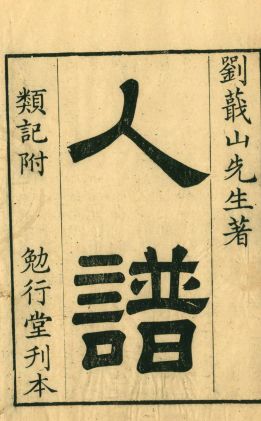 劉蕺山先生著
人譜
類記附
勉行堂刊本